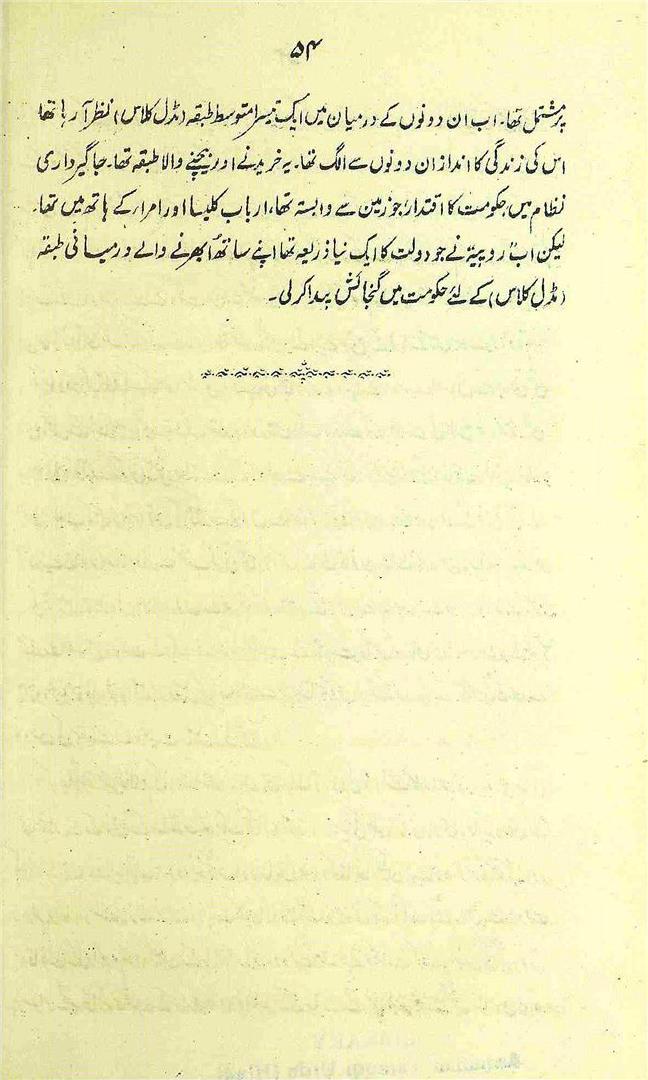 ۵۴
پر مشتمل تھا۔ اب ان دونوں کے درمیان میں ایک تیسرا متوسط طبقہ (مڈل کلاس) نظر آ رہا تھا
اس کی زندگی کا انداز ان دونوں سے الگ تھا۔ یہ خریدنے اور بیچنے والا طبقہ تھا۔ جاگیرداری
نظام میں حکومت کا اقتدار جو زمین سے وابستہ تھا، ارباب کلیسا اور امراء کے ہاتھ میں تھا۔
لیکن اب روپیہ نے جو دولت کا ایک نیا ذریعہ تھا اپنے ساتھ ابھرنے والے درمیانی طبقہ
(مڈل کلاس) کے لئے حکومت میں گنجائش پیدا کر لی۔